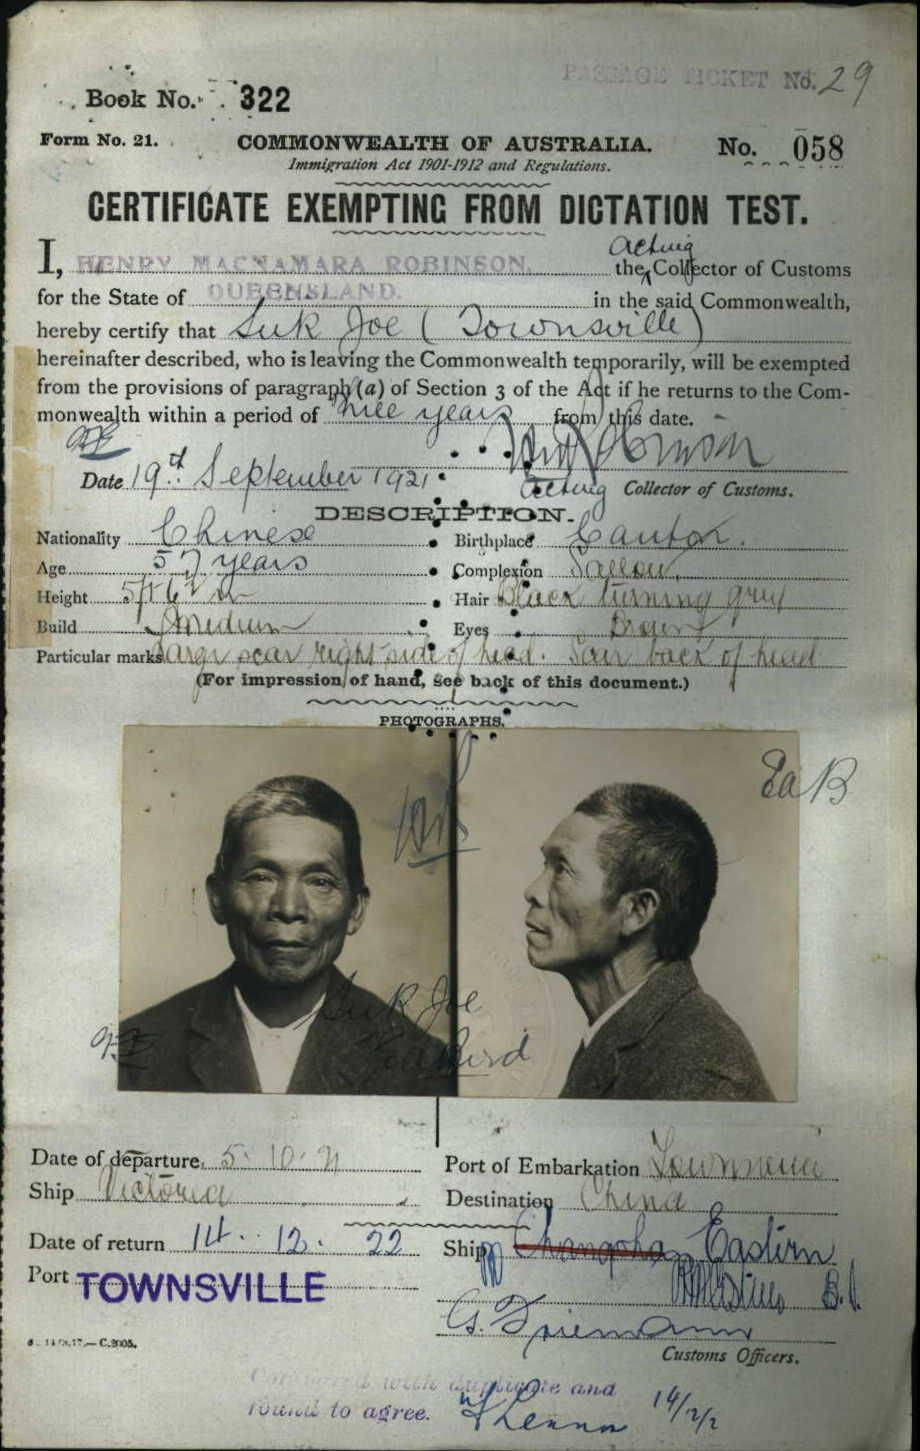 PASSAGE TICKET No. 29
Book No. 322
Form No. 21. COMMONWEALTH OF AUSTRALIA. No. 058
Immigration Act 1901-1912 and Regulations.
CERTIFICATE EXEMPTING FROM DICTATION TEST.
acting
I, HENRY MACNAMARA ROBINSON, the Collector of Customs
for the State of QUEENSLAND. in the said Commonwealth,
hereby certify that Suk Joe (Townsville)
hereinafter described, who is leaving the Commonwealth temporarily, will be exempted
from the provisions of paragraph (a) of Section 3 of the Act if he returns to the Com-
monwealth within a period of three years from this date.
Date 19th September 1921
Acting Collector of Customs.
DESCRIPTION.
Nationality Chinese Birthplace Canton.
Age 57 years Complexion Sallow.
Height 5ft 6 in Hair Black turning grey
Build Medium Eyes Brown
Particular marks Large scar right side of head. Scar back of head
(For impression of hand, see back of this document.)
PHOTOGRAPHS.
Suk Joe
Date of departure 5.10.21 Port of Embarkation Townsville
Ship Victoria Destination China
Date of return 14.12.22 Ship Changsha Eastern
Port TOWNSVILLE
Customs Officers.
C.2005.
Compared with duplicate and
found to agree.